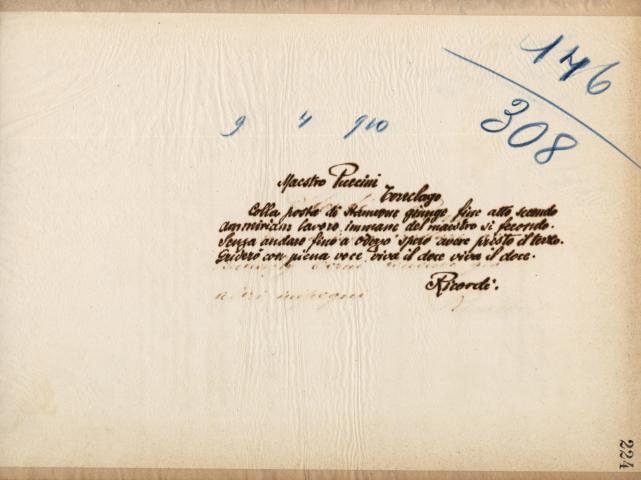 146
308
9 4 910
Maestro Puccini
Torrelago
Colla posta di stamane giunge fine atto secondo
ammiriam lavoro immane del maestro si fecondo.
Senza andare fino a spero avere presto il terzo.
Griderò con piena voce viva il doce viva il doce.
Ricordi.
224